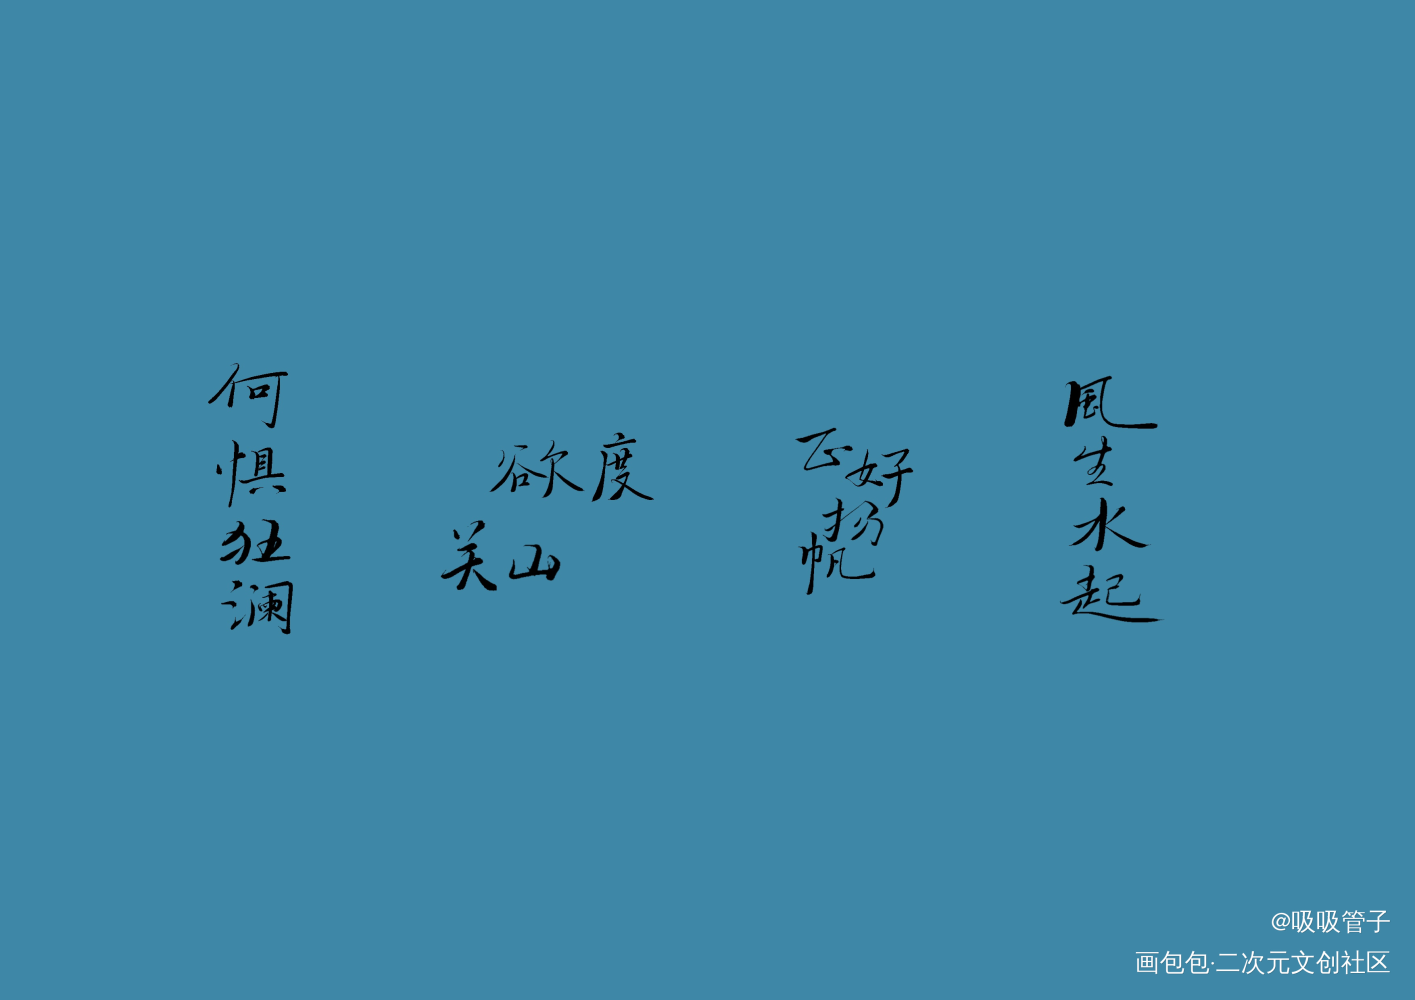 何惧狂澜
欲度
关山
正好
扬
帆
風生水起
@吸吸管子
画包包·二次元文创社区